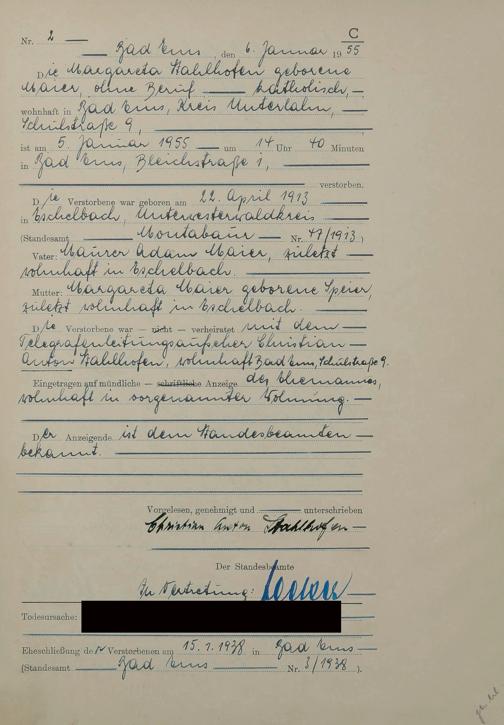 C
Nr. 2
Bad Ems, den 6. Januar 1955
Die Margareta Stahlhofen geborene
Maier, ohne Beruf katholisch,
wohnhaft in Bad Ems, Kreis Unterlahn,
Schulstraße 9,
ist am 5. Januar 1955 um 14 Uhr 40 Minuten
in Bad Ems, Bleichstraße 1,
verstorben.
Die Verstorbene war geboren am 22. April 1913
in Eschelbach, Unterwesterwaldkreis
(Standesamt Montabaur Nr. 47/1913)
Vater: Maurer Adam Maier, zuletzt
wohnhaft in Eschelbach.
Mutter: Margareta Maier geborene Speier,
zuletzt wohnhaft in Eschelbach.
Die Verstorbene war — nicht — verheiratet mit dem
Telegrafenleitungsaufseher Christian
Anton Stahlhofen, wohnhaft Bad Ems, Schulstraße 9.
Eingetragen auf mündliche — schriftliche Anzeige des Ehemannes,
wohnhaft in vorgenannter Wohnung.
Der Anzeigende ist dem Standesbeamten
bekannt.
Vorgelesen, genehmigt und unterschrieben
Christian Anton Stahlhofen
Der Standesbeamte
In Vertretung:
Todesursache:
Eheschließung der Verstorbenen am 15.1.1938 in Bad Ems
(Standesamt Bad Ems Nr. 3/1938).